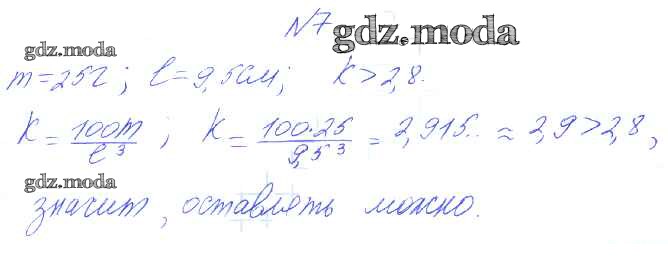 №7
gdz.moda
gdz.moda
m=25г; l=9,5см; K>2,8.
K = 100m/l³ ; K = 100·25/9,5³ = 2,915.. ≈ 2,9>2,8,
gdz.moda
значит, оставлять можно.